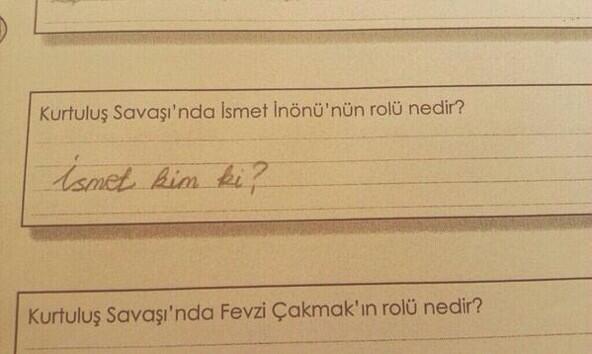 Kurtuluş Savaşı'nda İsmet İnönü'nün rolü nedir?
İsmet kim ki?
Kurtuluş Savaşı'nda Fevzi Çakmak'ın rolü nedir?